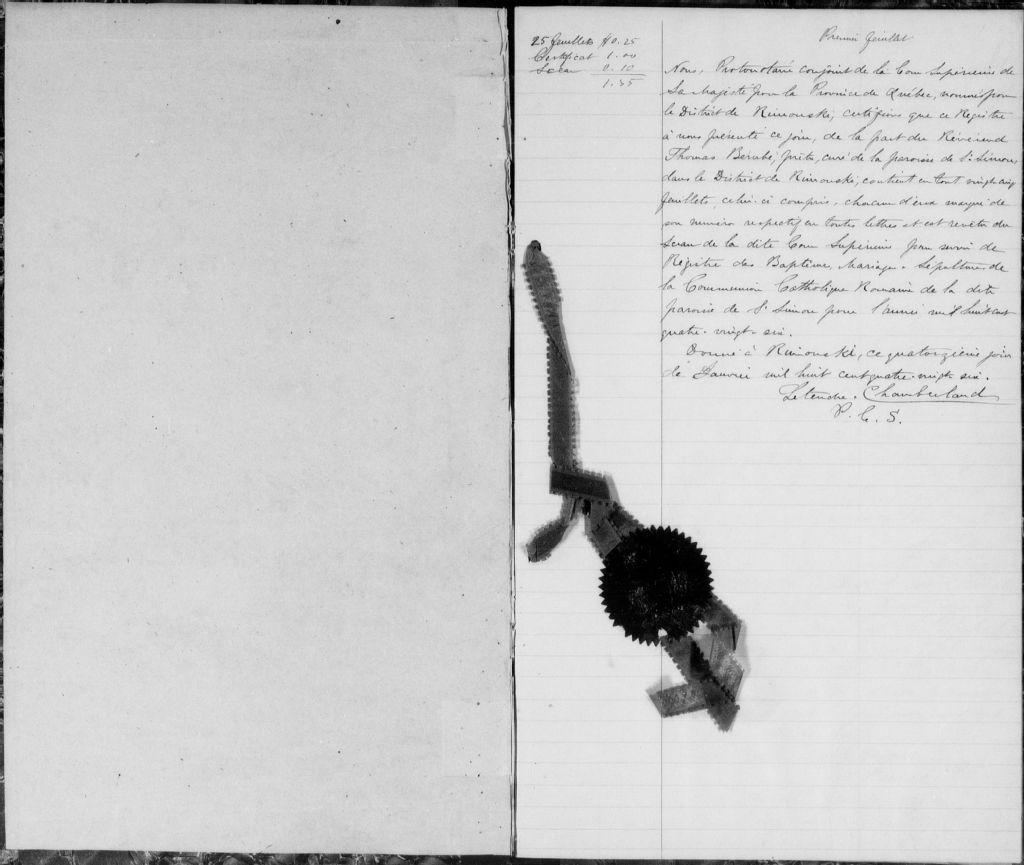 25 feuillets $0.25
Certificat 1.00
Sceau 0.10
1.35
Premier feuillet
Nous, Protonotaire conjoint de la Cour Supérieure de
Sa Majesté pour la Province de Québec, nommé pour
le District de Rimouski; certifions que ce Registre
à nous présenté ce jour, de la part du Révérend
Thomas Bérubé, prêtre, curé de la paroisse de St Simon,
dans le District de Rimouski, contient en tout vingt cinq
feuillets, celui-ci compris, chacun d'eux marqué de
son numéro respectif en toutes lettres et est revêtu du
Sceau de la dite Cour Supérieure pour servir de
Régistre des Baptêmes, Mariages & Sépultures de
la Communion Catholique Romaine de la dite
paroisse de St Simon pour l'année mil huit cent
quatre-vingt-six.
Donné à Rimouski, ce quatorzième jour
de Janvier mil huit cent quatre-vingt-six.
Letendre & Chamberland
P. C. S.